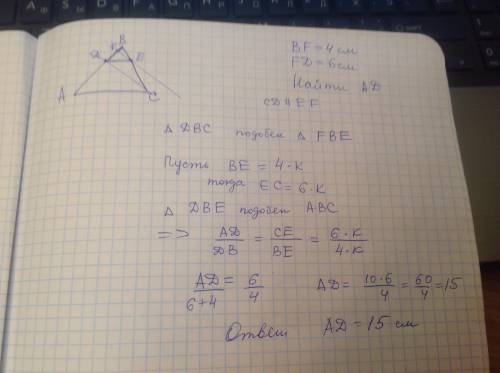 BF = 4 см
FD = 6 см
Найти AD
CD ∥ EF
B
F
D
E
A
C
Δ DBC подобен Δ FBE
Пусть BE = 4·K
тогда EC = 6·K
Δ DBE подобен ABC
=> AD/DB = CE/BE = 6·K/4·K
AD/6+4 = 6/4 AD = 10·6/4 = 60/4 = 15
Ответ AD = 15 см